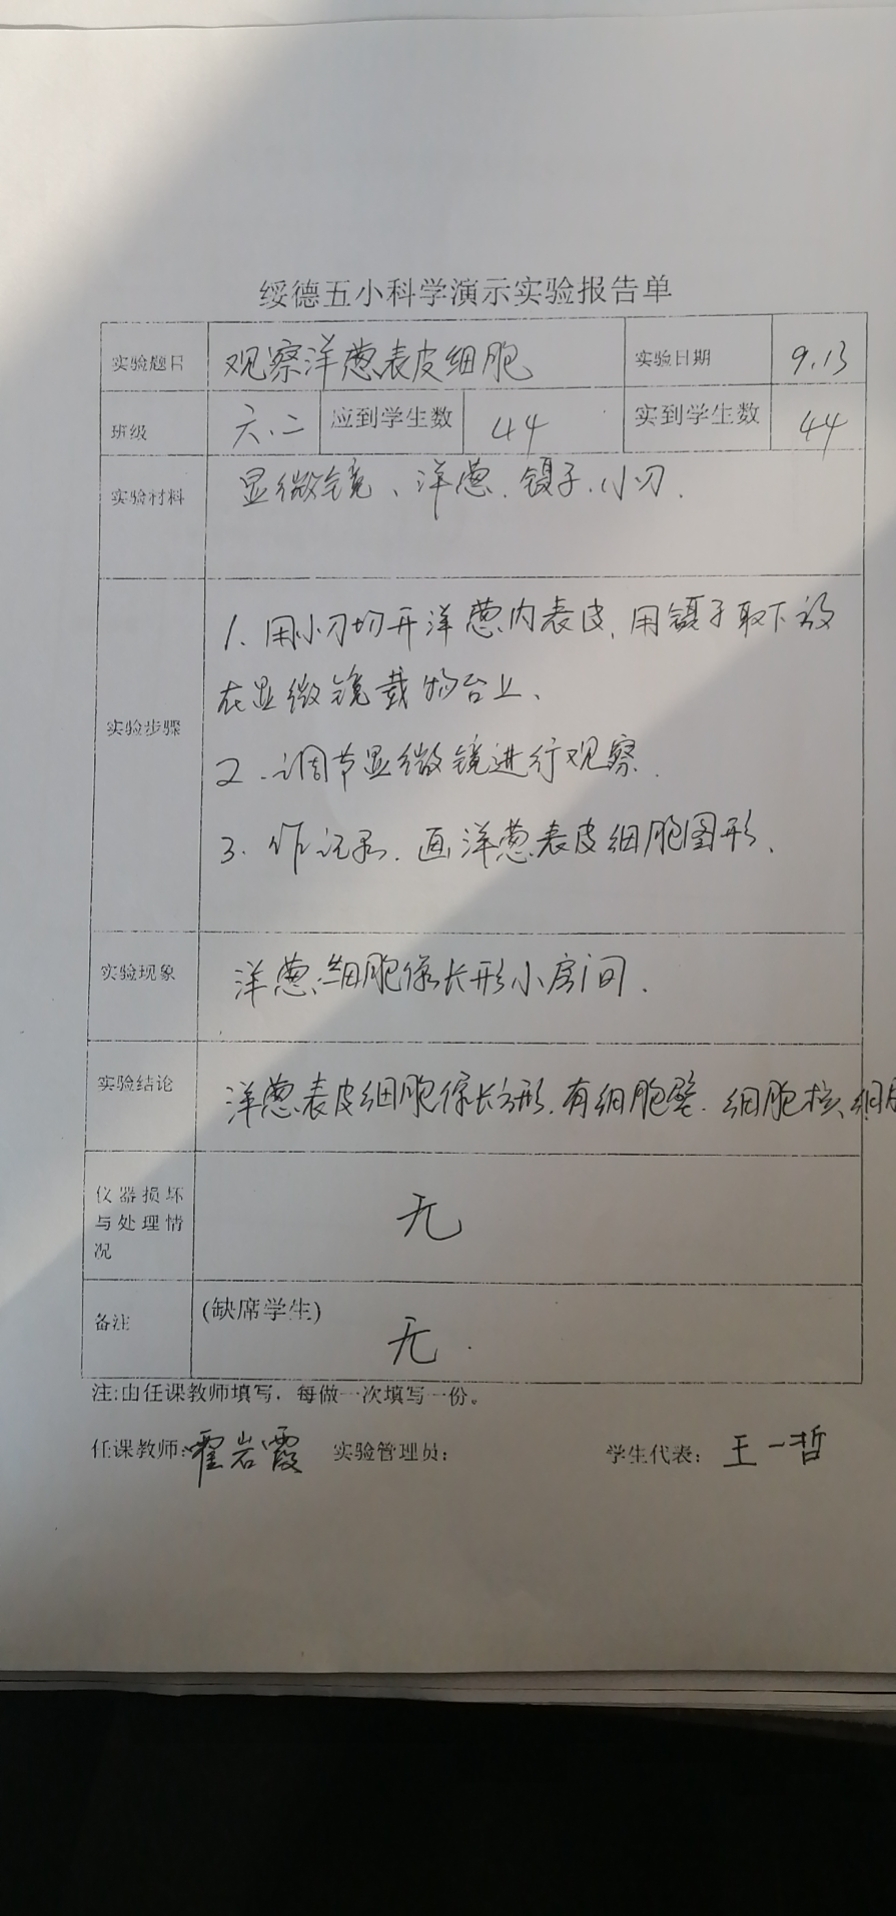 绥德五小科学演示实验报告单
实验题目 观察洋葱表皮细胞 实验日期 9.13
班级 六.二 应到学生数 44 实到学生数 44
实验材料 显微镜、洋葱.镊子.小刀.
实验步骤
1.用小刀切开洋葱内表皮,用镊子取下放
在显微镜载物台上、
2.调节显微镜进行观察.
3.作记录.画洋葱表皮细胞图形、
实验现象 洋葱细胞像长形小房间.
实验结论 洋葱表皮细胞像长方形.有细胞壁.细胞核、细胞
仪器损坏
与处理情
况
无
备注 (缺席学生)
无.
注:由任课教师填写,每做一次填写一份。
任课教师:霍岩霞 实验管理员: 学生代表:王一哲